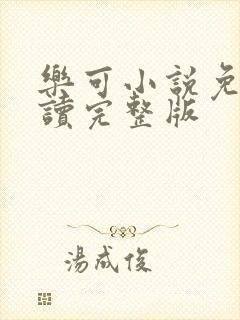 樂可小說免
讀完整版
湯成俊